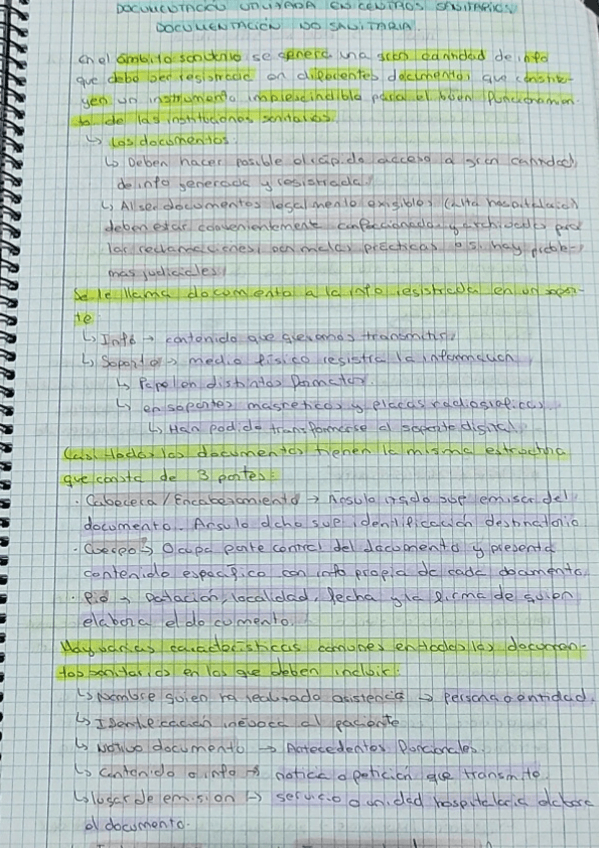 DOCUMENTACIÓN UTILIZADA EN CENTROS SANITARIOS
DOCUMENTACIÓN NO SANITARIA.
En el ámbito sanitario se genera una gran cantidad de info
que debe ser registrada en diferentes documentos que constitu-
yen un instrumento imprescindible para el buen funcionamien-
to de las instituciones sanitarias.
↳ Los documentos:
↳ Deben hacer posible el rápido acceso a gran cantidad
de info generada y registrada.
↳ Al ser documentos legalmente exigibles (alta hospitalaria)
deben estar convenientemente confeccionados y archivados para
las reclamaciones, por malas prácticas o si hay proble-
mas judiciales.
Se le llama documento a la info registrada en un sopor-
te
↳ Info → contenido que queramos transmitir.
↳ Soporte → medio físico registra la información
↳ Papel en distintos formatos.
↳ en soportes magnéticos y placas radiográficas
↳ Han podido transformarse al soporte digital.
Casi todos los documentos tienen la misma estructura
que consta de 3 partes:
· Cabecera / Encabezamiento → Angulo izqdo sup emisor del
documento. Angulo dcho sup identificación destinatario
· Cuerpo → Ocupa parte central del documento y presenta
contenido específico con info propia de cada documento.
· Pie → Datación, localidad, fecha y la firma de quien
elabora el documento.
Hay varias características comunes en todos los documen-
tos sanitarios en los que deben incluir:
↳ Nombre quien ha realizado asistencia → persona o entidad.
↳ Identificación inequoca al paciente
↳ Motivo documento → Antecedentes funcionales.
↳ Contenido o info → noticia o petición que transmite.
↳ lugar de emisión → servicio o unidad hospitalaria elabora
el documento.